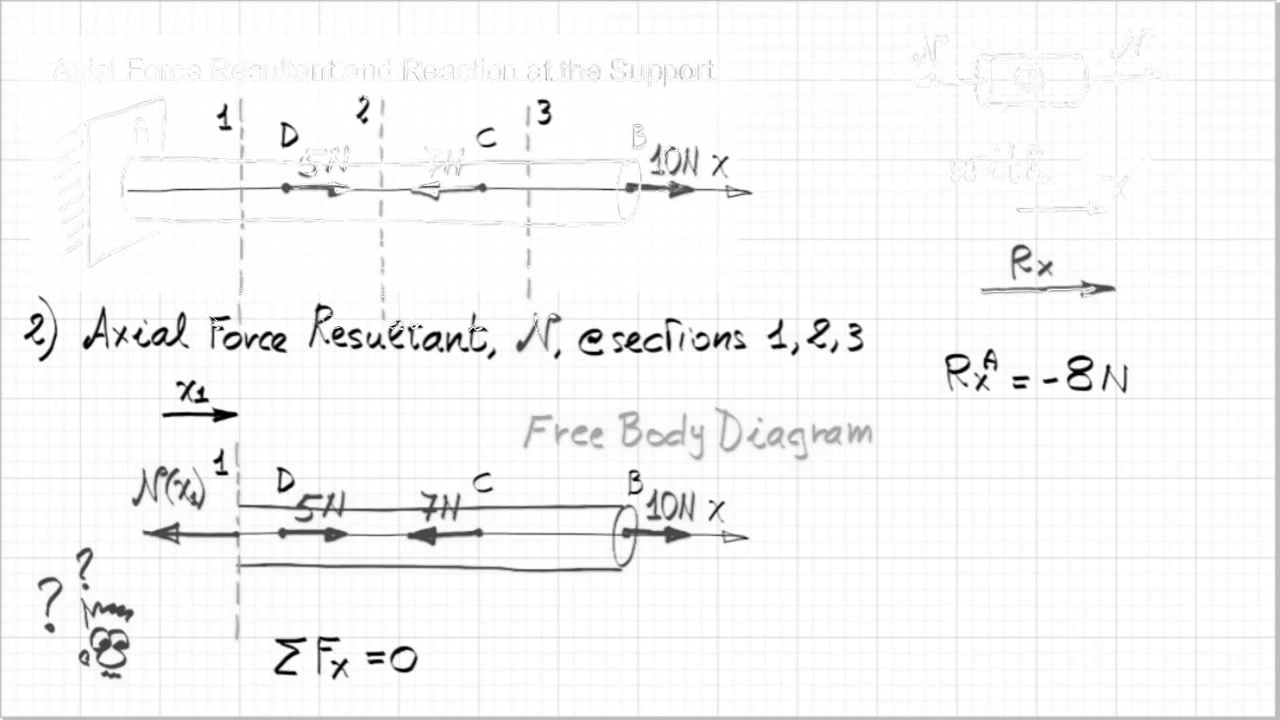 Axial Force Resultant and Reaction at the Support
N N
1 2 3
A D C B
5N 7N 10N x
with
x
Rx
2) Axial Force Resultant, N, @sections 1,2,3
RxA = -8N
x1
Free Body Diagram
1 D C B
N(x1) 5N 7N 10N x
? ?
ΣFx = 0